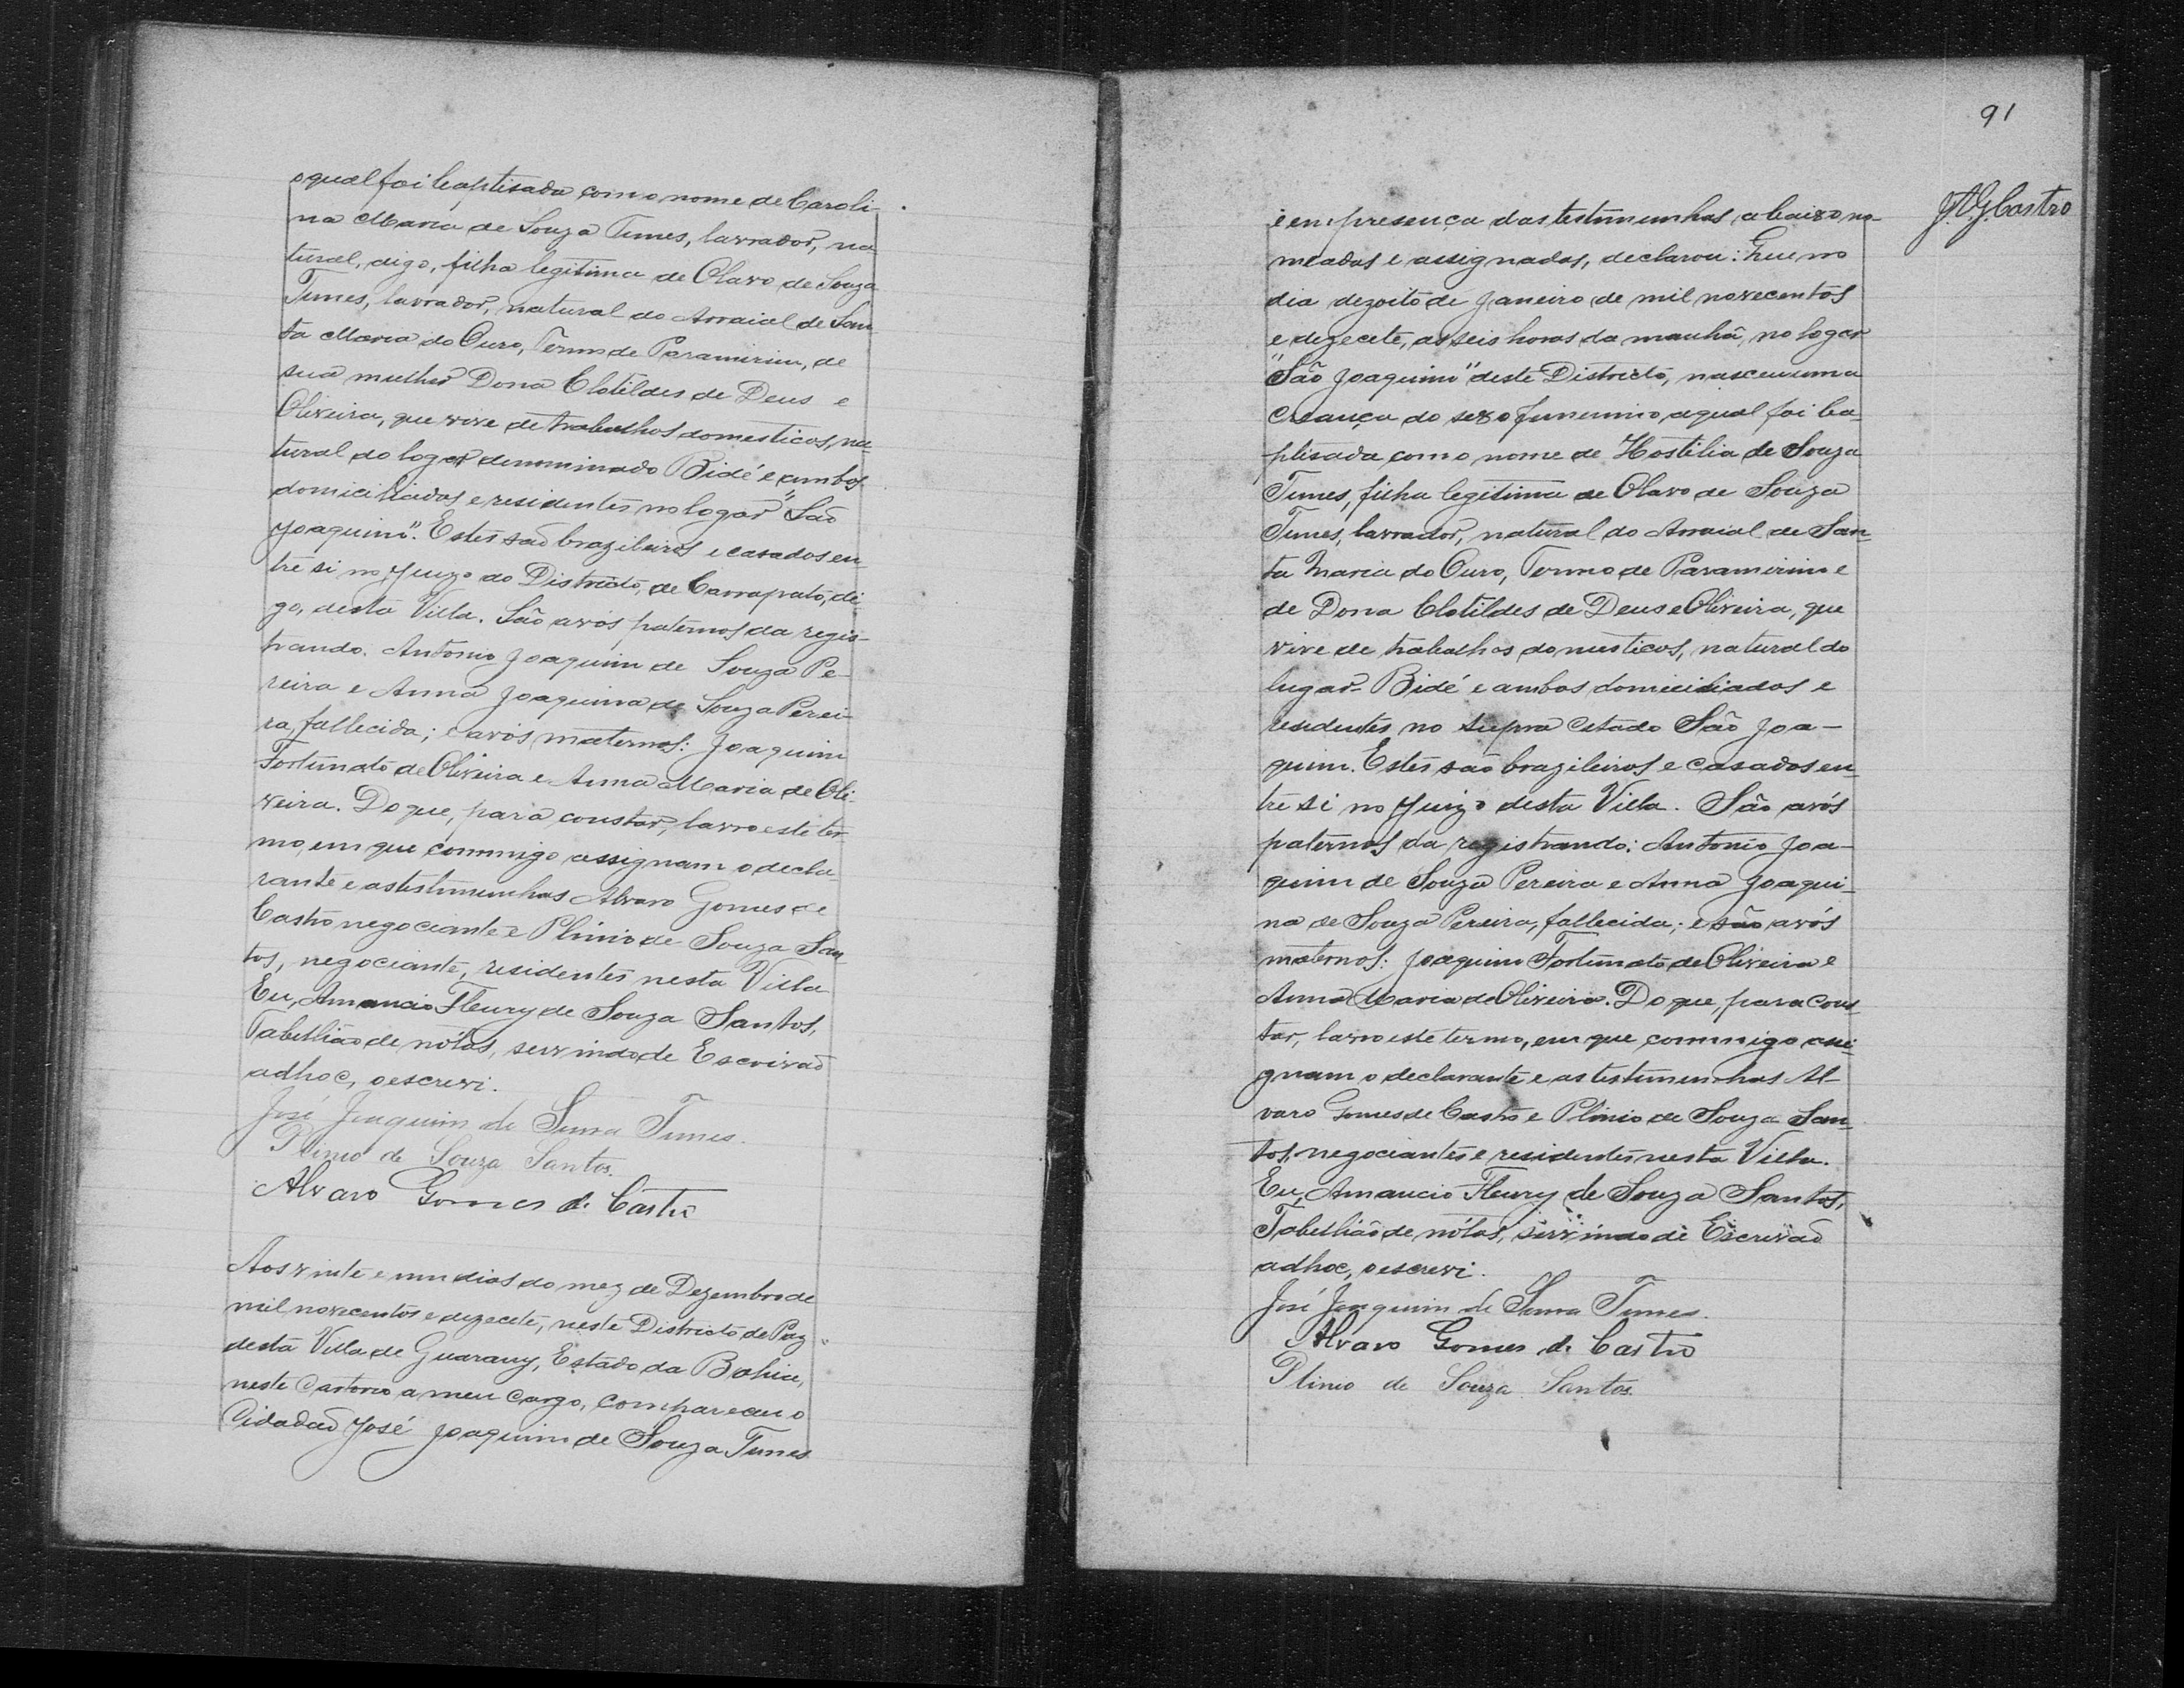 o qual foi baptisada com o nome de Caroli-
na Maria de Souza Tunes, lavrador, na-
tural, digo, filha legitima de Olavo de Souza
Tunes, lavrador, natural do Arraial de San-
ta Maria do Ouro, Termo de Paramirim, de
sua mulher Dona Clotildes de Deus e
Oliveira, que vive de trabalhos domesticos, na-
tural do logar denominado Bidé e ambos
domiciliados e residentes no logar "São
Joaquim". Estes são brazileiros e casados en-
tre si no Juizo do Districto, de Carrapato, di-
go, desta Villa. São avós paternos da regis-
trando. Antonio Joaquim de Souza Pe-
reira e Anna Joaquina de Souza Perei-
ra, fallecida; e avós maternos: Joaquim
Fortunato de Oliveira e Anna Maria de Oli-
veira. Do que, para constar, lavro este ter-
mo, em que commigo assignam o decla-
rante e as testimunhas Alvaro Gomes de
Castro negociante e Plinio de Souza San-
tos, negociante, residentes nesta Villa
Eu, Amancio Fleury de Souza Santos,
Tabellião de nótas, servindo de Escrivão
adhoc, o escrevi.
José Joaquim de Souza Tunes.
Plinio de Souza Santos.
Alvaro Gomes de Castro
Aos vinte e um dias do mez de Dezembro de
mil novecentos e dezecete, neste Districto de Paz
desta Villa de Guarany, Estado da Bahia,
neste Cartorio a meu cargo, compareceu o
Cidadão José Joaquim de Souza Tunes
91
J.A.G. Castro
e em presença das testimunhas abaixo no-
meadas e assignadas, declarou: Que no
dia dezoito de Janeiro de mil novecentos
e dezecete, as seis horas da manhã, no logar
"São Joaquim" deste Districto, nasceu uma
creança do sexo femenino a qual foi ba-
ptisada com o nome de Hostilia de Souza
Tunes, filha legitima de Olavo de Souza
Tunes, lavrador, natural do Arraial de San-
ta Maria do Ouro, Termo de Paramirim e
de Dona Clotildes de Deus e Oliveira, que
vive de trabalhos domesticos, natural do
lugar Bidé e ambos domiciliados e
residentes no supra citado São Joa-
quim. Estes são brazileiros e casados en-
tre si no Juizo desta Villa. São avós
paternos da registrando: Antonio Joa-
quim de Souza Pereira e Anna Joaqui-
na de Souza Pereira, fallecida; e são avós
maternos: Joaquim Fortunato de Oliveira e
Anna Maria de Oliveira. Do que, para cons-
tar, lavro este termo, em que commigo assi-
gnam o declarante e as testimunhas Al-
varo Gomes de Castro e Plinio de Souza San-
tos, negociantes e residentes nesta Villa.
Eu, Amancio Fleury de Souza Santos,
Tabellião de nótas, servindo de Escrivão
adhoc, o escrevi.
José Joaquim de Souza Tunes.
Alvaro Gomes de Castro
Plinio de Souza Santos.